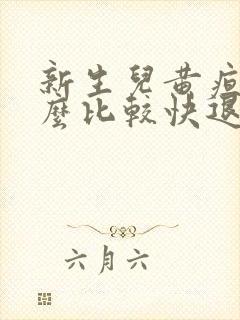 新生兒黃疸
麼比較快退
六月六